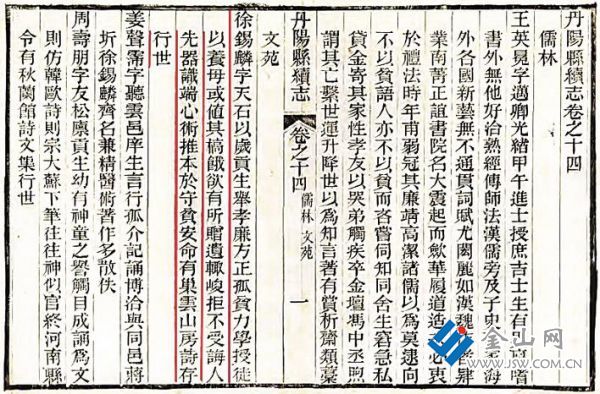 丹陽縣續志卷之十四
儒林
王英冕字適卿光緒甲午進士授庶吉士生有嗜
書外無他好治熟經傳師法漢儒旁及子史海
外各國新藝無不通貫詞賦尤閎麗如漢魏肄
業南菁正誼書院名大震起而歛華履道造必衷
於禮法時年甫弱冠其廉靖高潔諸儒以為莫逮向
不以貧語人亦不以貧而吝嘗同知同舍生窘急私
貸金寄其家性孝友以哭弟觸疾卒金壇馮中丞煦
謂其亡繫世運升降世以為知言著有賞析齋類稾
丹陽縣續志
卷之十四
儒林 文苑
一
文苑
徐錫麟字天石以歲貢生舉孝廉方正孤貧力學授徒
以養母或值其槁餓欲有所贈遺輒峻拒不受誨人
先器識端心術推本於守貧安命有巢雲山房詩存
行世
姜聲霈字聽雲邑庠生言行孤介記誦博洽與同邑蔣
圻徐錫麟齊名兼精醫術著作多散佚
周壽朋字友松廩貢生幼有神童之譽觸目成誦為文
則仿韓歐詩則宗大蘇下筆往往神似官終河南縣
令有秋蘭館詩文集行世
金山网
WWW.JSW.COM.CN